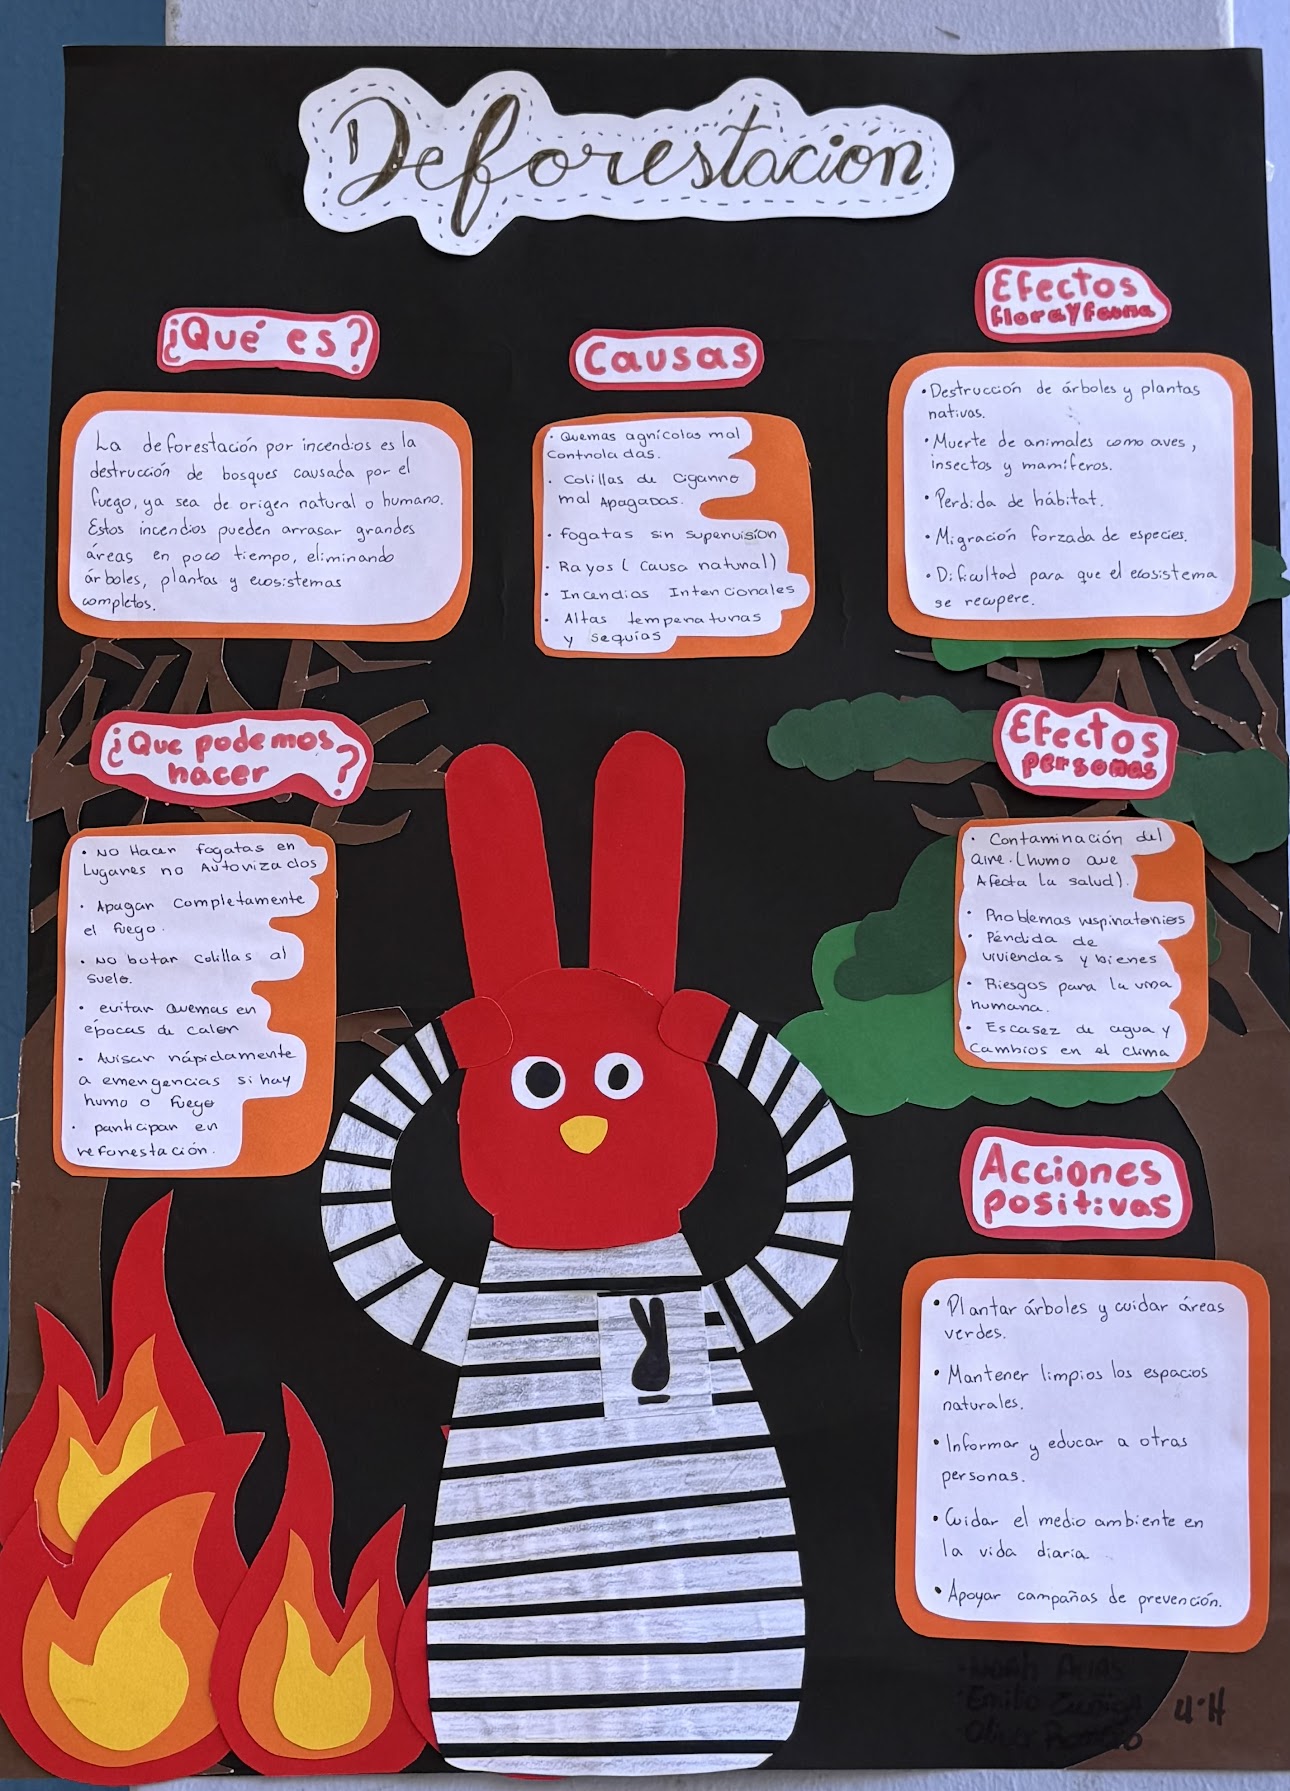 Deforestación
¿Qué es?
La deforestación por incendios es la
destrucción de bosques causada por el
fuego, ya sea de origen natural o humano.
Estos incendios pueden arrasar grandes
áreas en poco tiempo, eliminando
árboles, plantas y ecosistemas
completos.
Causas
• Quemas agrícolas mal
controladas.
• Colillas de cigarro
mal Apagadas.
• fogatas sin supervisión
• Rayos (causa natural)
• Incendios Intencionales
• Altas temperaturas
y sequías
Efectos
flora y fauna
• Destrucción de árboles y plantas
nativas.
• Muerte de animales como aves,
insectos y mamíferos.
• Perdida de hábitat.
• Migración forzada de especies.
• Dificultad para que el ecosistema
se recupere.
¿Que podemos
hacer ?
• NO Hacer fogatas en
Lugares no Autorizados
• Apagar completamente
el fuego.
• NO botar colillas al
suelo.
• evitar quemas en
épocas de calor
• Avisar rápidamente
a emergencias si hay
humo o fuego
• participar en
reforestación.
Efectos
personas
• Contaminación del
aire. (humo que
Afecta la salud).
• Problemas respiratorios
• Pérdida de
viviendas y bienes
• Riesgos para la vida
humana.
• Escasez de agua y
cambios en el clima
Acciones
positivas
• Plantar árboles y cuidar áreas
verdes.
• Mantener limpios los espacios
naturales.
• Informar y educar a otras
personas.
• Cuidar el medio ambiente en
la vida diaria.
• Apoyar campañas de prevención.
Arias
• Emilio
4·H